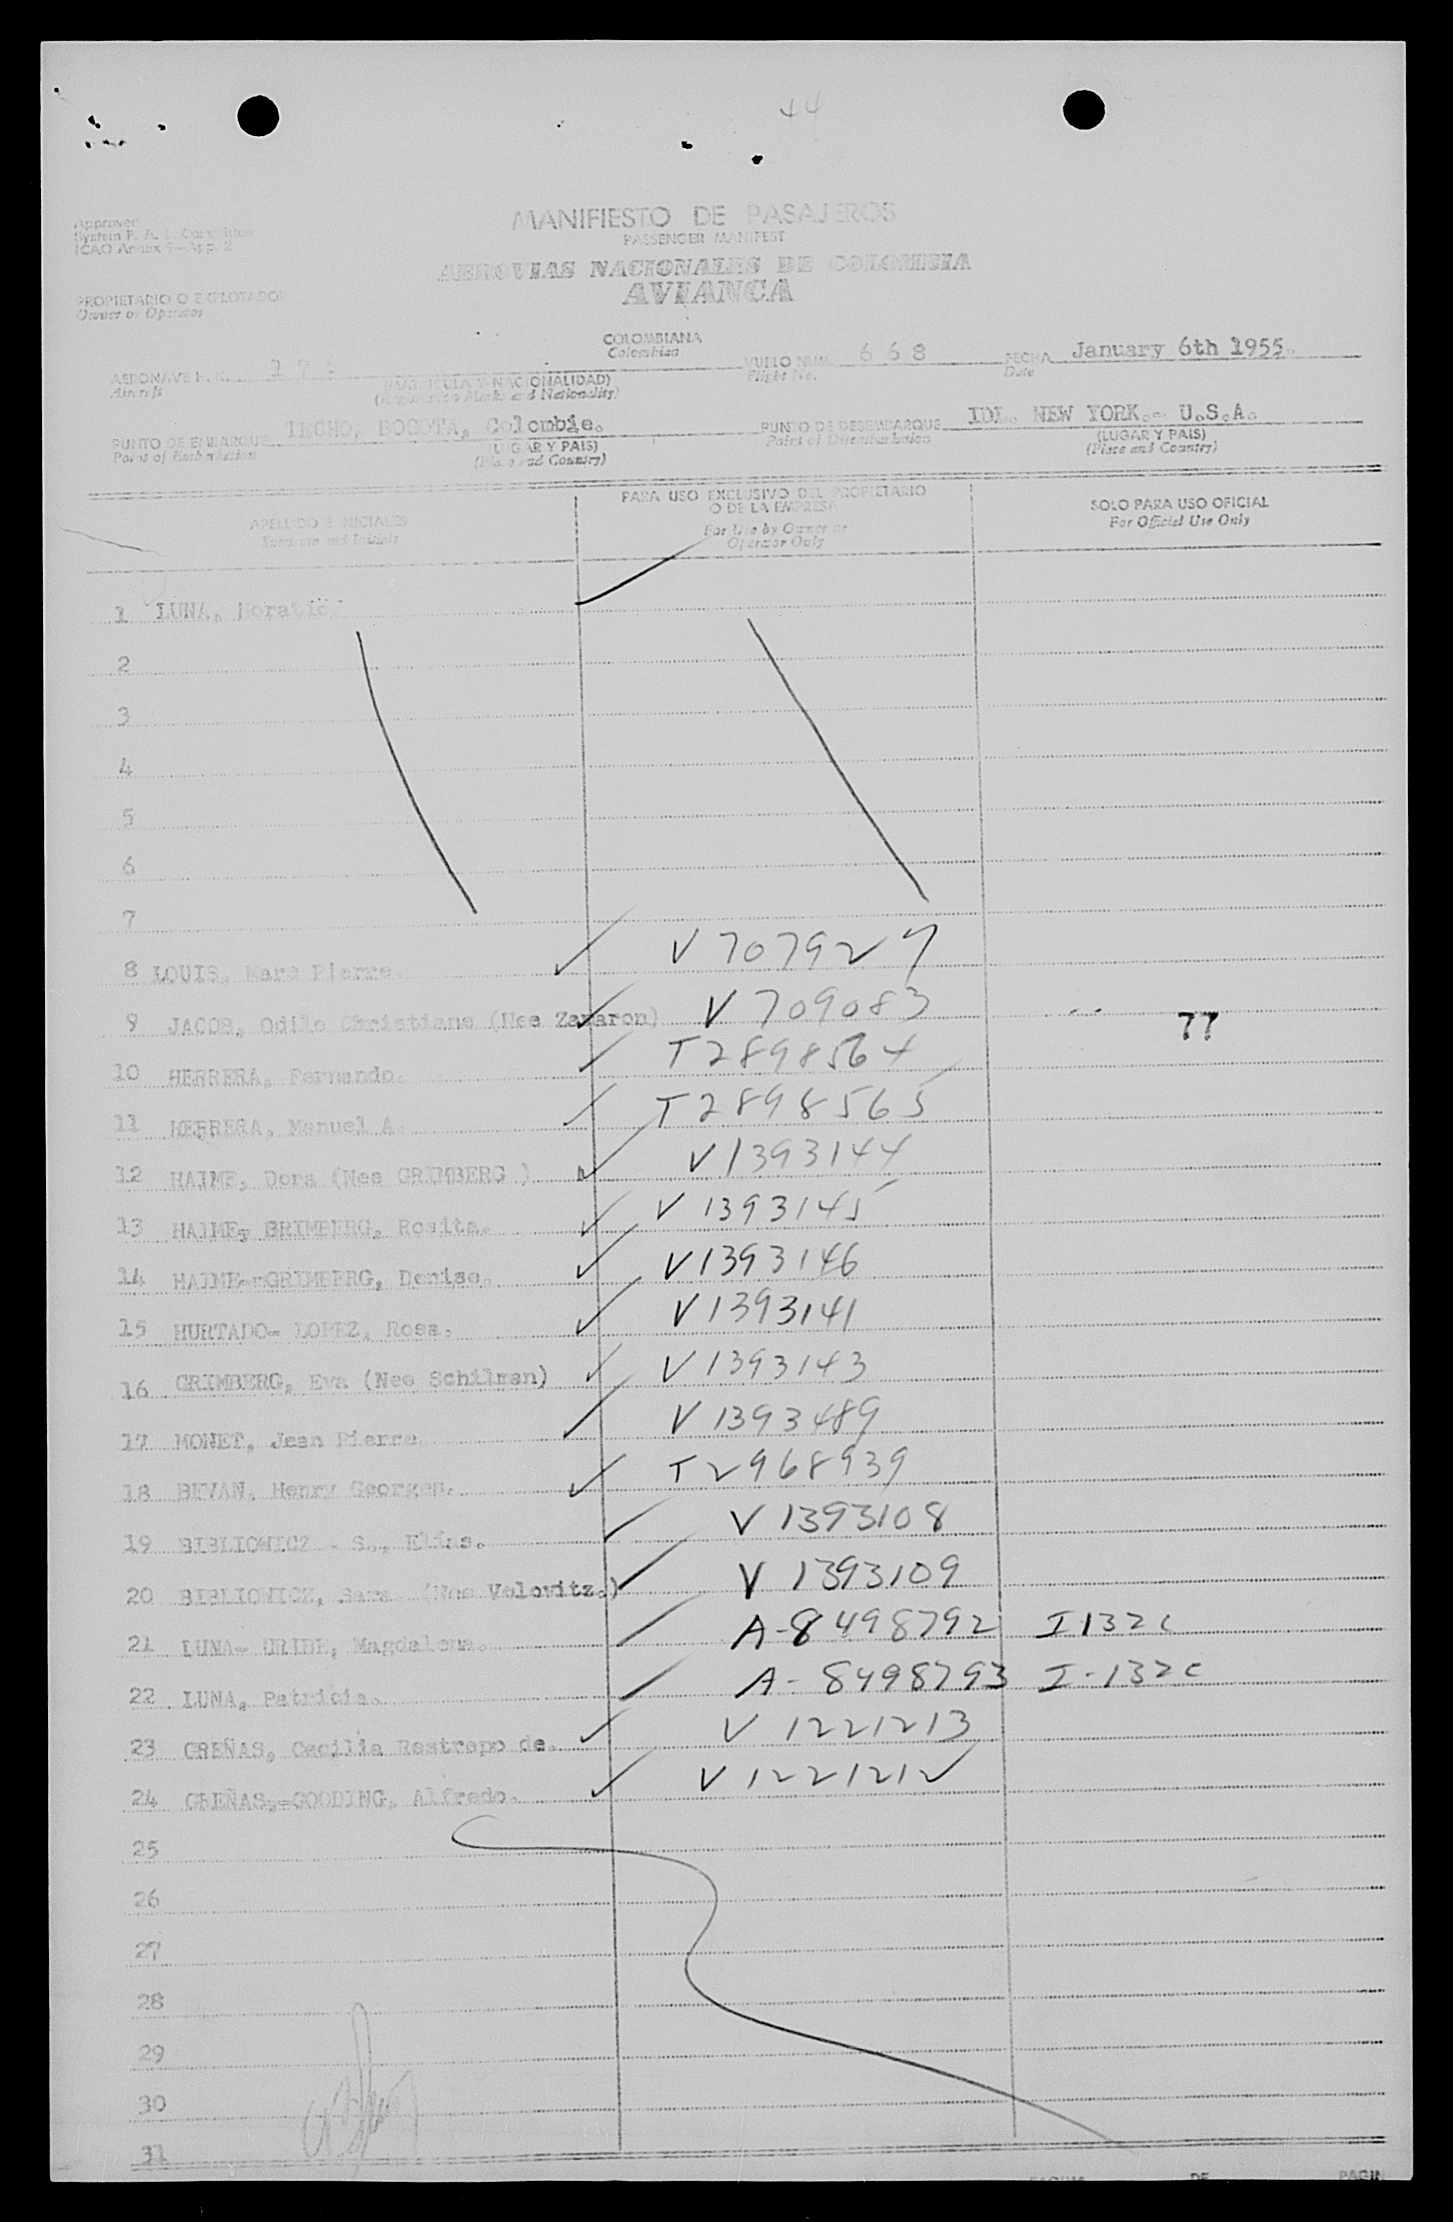 44
MANIFIESTO DE PASAJEROS
PASSENGER MANIFEST
ICAO Annex
AEROVIAS NACIONALES DE COLOMBIA
AVIANCA
PROPIETARIO O EXPLOTADOR
Owner or Operator
COLOMBIANA
Colombian
AERONAVE
Aircraft
(MATRICULA Y NACIONALIDAD)
(Registration Marks and Nationality)
VUELO NUM. 668
Flight No.
FECHA January 6th 1955.
Date
PUNTO DE EMBARQUE TECHO, BOGOTA, Colombia.
Point of Embarkation
(LUGAR Y PAIS)
(Place and Country)
PUNTO DE DESEMBARQUE IDL. NEW YORK.- U.S.A.
Point of Disembarkation
(LUGAR Y PAIS)
(Place and Country)
APELLIDO E INICIALES
Surname and Initials
PARA USO EXCLUSIVO DEL PROPIETARIO
O DE LA EMPRESA
For Use by Owner or
Operator Only
SOLO PARA USO OFICIAL
For Official Use Only
1 LUNA, Horatio
2
3
4
5
6
7
8 LOUIS, Marc Pierre. V 707927
9 JACOB, Odile Christiane (Nee Zaparon) V 709083 77
10 HERRERA, Fernando. T2898564
11 HERRERA, Manuel A. T2898565
12 HAIME, Dora (Nee GRIMBERG ) V1393144
13 HAIME, GRIMBERG, Rosita. V 1393145
14 HAIME-GRIMBERG, Denise. V1393146
15 HURTADO- LOPEZ, Rosa. V1393141
16 GRIMBERG, Eva (Nee Schilman) V1393143
17 MONET, Jean Pierre V 1393489
18 BEVAN, Henry Georges. T2968939
19 BIBLIOWICZ - S., Elias. V 1393108
20 BIBLIOWICZ, Sara (Nee Velovitz.) V 1393109
21 LUNA- URIBE, Magdalena. A-8498792 I132c
22 LUNA, Patricia. A-8498793 I-132c
23 GREÑAS, Cecilia Restrepo de. V 1221213
24 GREÑAS,-GOODING, Alfredo. V 1221212
25
26
27
28
29
30
31
DE